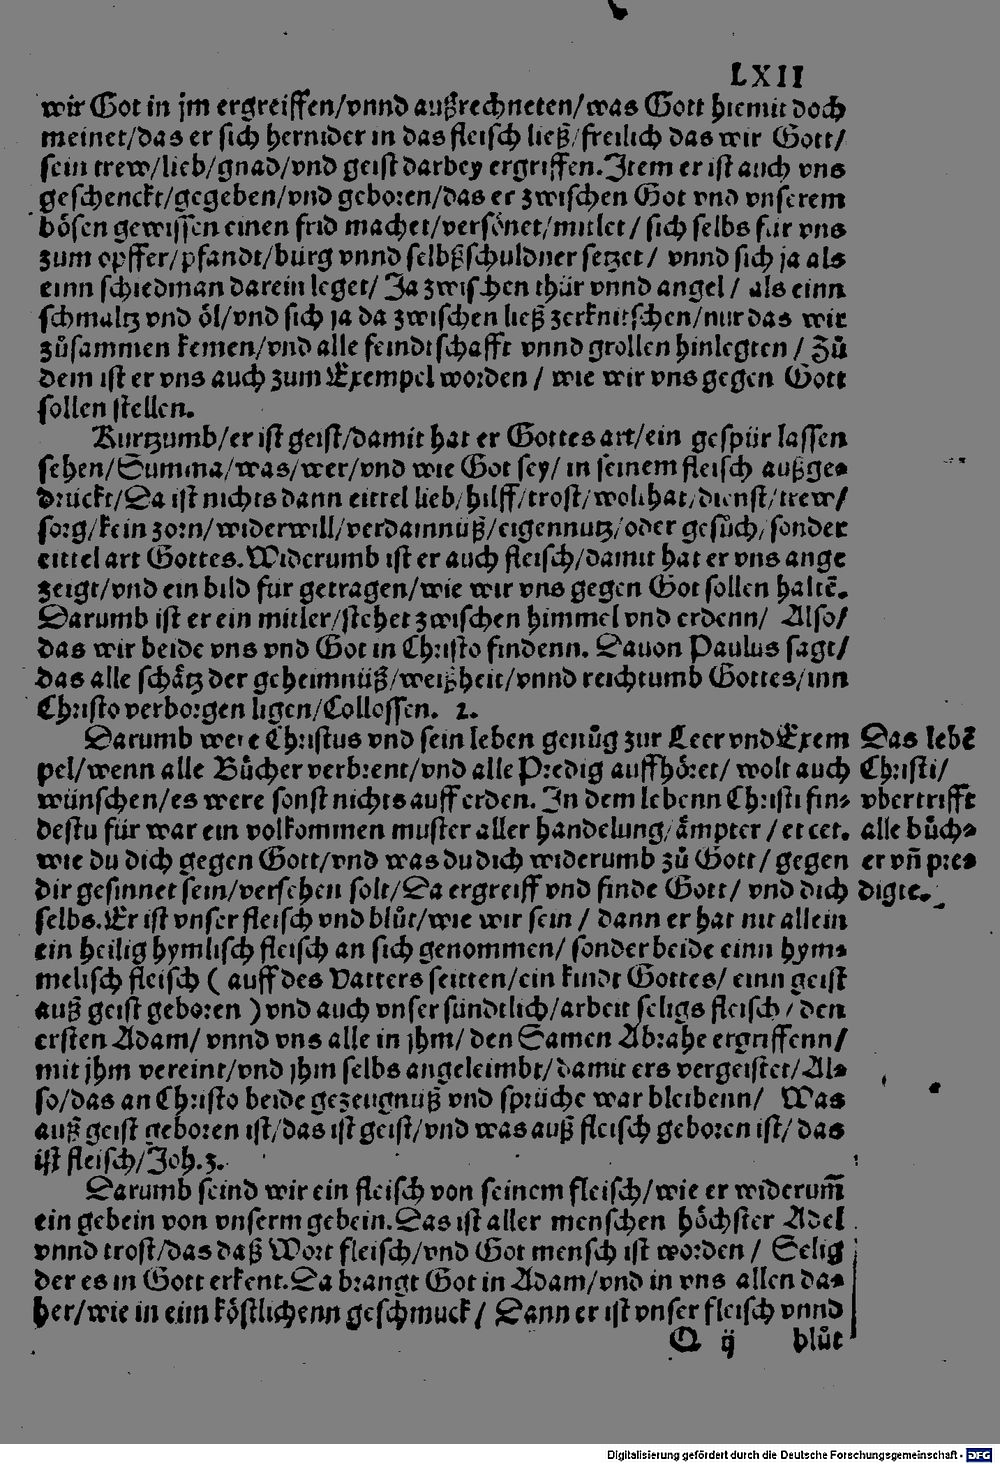 LXII
wir Got in jm ergreiffen/vnnd außrechneten/was Gott hiemit doch
meinet/das er sich hernider in das fleisch ließ/freilich das wir Gott/
sein trew/lieb/gnad/vnd geist darbey ergriffen. Item er ist auch vns
geschenckt/gegeben/vnd geboren/das er zwischen Got vnd vnserem
bösen gewissen einen frid machet/versönet/mitlet/ sich selbs für vns
zum opffer/pfandt/bürg vnnd selbßschuldner setzet/ vnnd sich ja als
einn schiedman darein leget/ Ja zwischen thür vnnd angel/ als einn
schmaltz vnd öl/vnd sich ja da zwischen ließ zerknitschen/nur das wir
zůsammen kemen/vnd alle feindtschafft vnnd grollen hinlegten/ Zů
dem ist er vns auch zum Exempel worden/ wie wir vns gegen Gott
sollen stellen.
Kurtzumb/er ist geist/damit hat er Gottes art/ein gespür lassen
sehen/Summa/was/wer/vnd wie Got sey/ in seinem fleisch außge⸗
drückt/Da ist nichts dann eittel lieb/hilff/trost/wolthat/dienst/trew/
sorg/kein zorn/widerwill/verdamnüß/eigennutz/oder gesůch/sonder
eittel art Gottes. Widerumb ist er auch fleisch/damit hat er vns ange
zeigt/vnd ein bild für getragen/wie wir vns gegen Got sollen haltē.
Darumb ist er ein mitler/stehet zwischen himmel vnd erdenn/ Also/
das wir beide vns vnd Got in Christo findenn. Dauon Paulus sagt/
das alle schätz der geheimnüß/weißheit/vnnd reichtumb Gottes/inn
Christo verborgen ligen/Collossen. 2.
Darumb were Christus vnd sein leben genůg zur Leer vnd Exem
pel/wenn alle Bücher verbrent/vnd alle Predig auffhöret/ wolt auch
wünschen/es were sonst nichts auff erden. In dem lebenn Christi fin⸗
destu für war ein volkommen muster aller handelung/ämpter/et cet.
wie du dich gegen Gott/vnd was du dich widerumb zů Gott/ gegen
dir gesinnet sein/versehen solt/Da ergreiff vnd finde Gott/ vnd dich
selbs. Er ist vnser fleisch vnd blůt/wie wir sein/ dann er hat nit allein
ein heilig hymlisch fleisch an sich genommen/ sonder beide einn hym⸗
melisch fleisch ( auff des Vatters seitten/ein kindt Gottes/ einn geist
auß geist geboren ) vnd auch vnser sündtlich/arbeit seligs fleisch/ den
ersten Adam/ vnnd vns alle in jhm/ den Samen Abrahe ergriffenn/
mit jhm vereint/vnd jhm selbs angeleimbt/damit ers vergeistet/Al⸗
so/das an Christo beide gezeugnüß vnd sprüche war bleibenn/ Was
auß geist geboren ist/das ist geist/vnd was auß fleisch geboren ist/ das
ist fleisch/Joh. 3.
Darumb seind wir ein fleisch von seinem fleisch/wie er widerum̄
ein gebein von vnserm gebein. Das ist aller menschen höchster Adel
vnnd trost/das daß Wort fleisch/vnd Got mensch ist worden/ Selig
der es in Gott erkent. Da brangt Got in Adam/vnd in vns allen da⸗
her/wie in eim köstlichenn geschmuck/ Dann er ist vnser fleisch vnnd
Q ij blůt
Das lebē
Christi/
vbertrifft
alle büch⸗
er vn̄ pre⸗
digte.
Digitalisierung gefördert durch die Deutsche Forschungsgemeinschaft - DFG